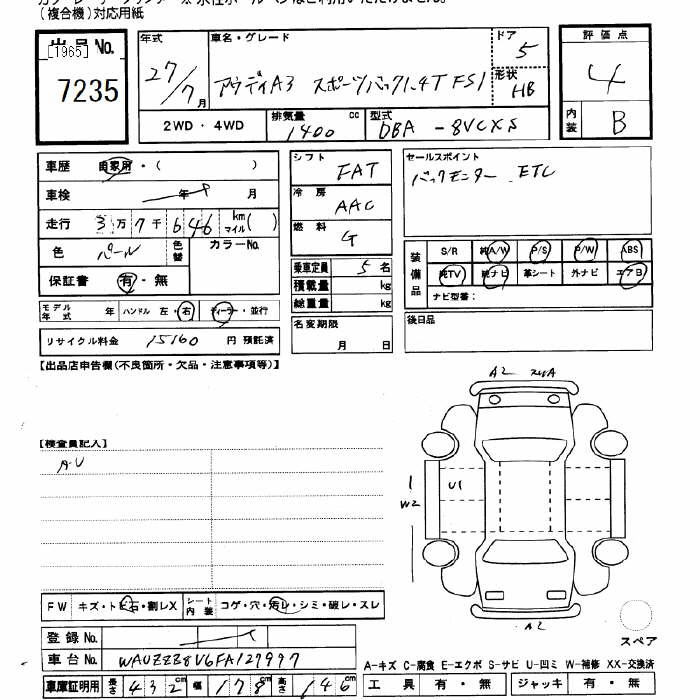 (複合機)対応用紙
出品No.
[1965]
7235
年式
27/7月
車名・グレード
アウディA3 スポーツバック1.4T FSI
ドア
5
形状
HB
評価点
4
内装
B
2WD・4WD
排気量
1400 cc
型式
DBA -8VCXS
車歴 自家用・( )
車検 年 月
走行 3万7千646 km マイル( )
色 パール 色替 カラーNo.
保証書 有・無
モデル年式 年 ハンドル 左・右 ディーラー・並行
リサイクル料金 15160 円 預託済
シフト
FAT
冷房
AAC
燃料
G
乗車定員 5名
積載量 kg
総重量 kg
名変期限
月 日
セールスポイント
バックモニター ETC
装備品
S/R 純A/W P/S P/W ABS
純TV 純ナビ 革シート 外ナビ エアB
ナビ型番:
後日品
【出品店申告欄(不良箇所・欠品・注意事項等)】
【検査員記入】
AU
A2
U1
W2
A2
スペア
FW キズ・トビ石・割レX シート内装 コゲ・穴・汚レ・シミ・破レ・スレ
登録No.
車台No. WAUZZZ8V6FA127997
車庫証明用 長さ 432cm 幅 178cm 高さ 146cm
A-キズ C-腐食 E-エクボ S-サビ U-凹ミ W-補修 XX-交換済
工具 有・無 ジャッキ 有・無